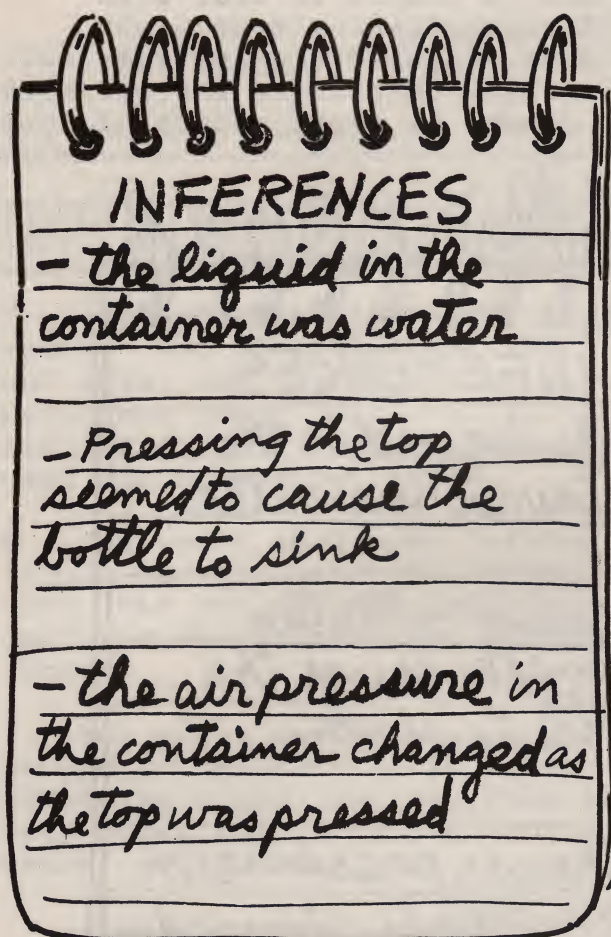 INFERENCES
- the liquid in the
container was water
- Pressing the top
seemed to cause the
bottle to sink
- the air pressure in
the container changed as
the top was pressed